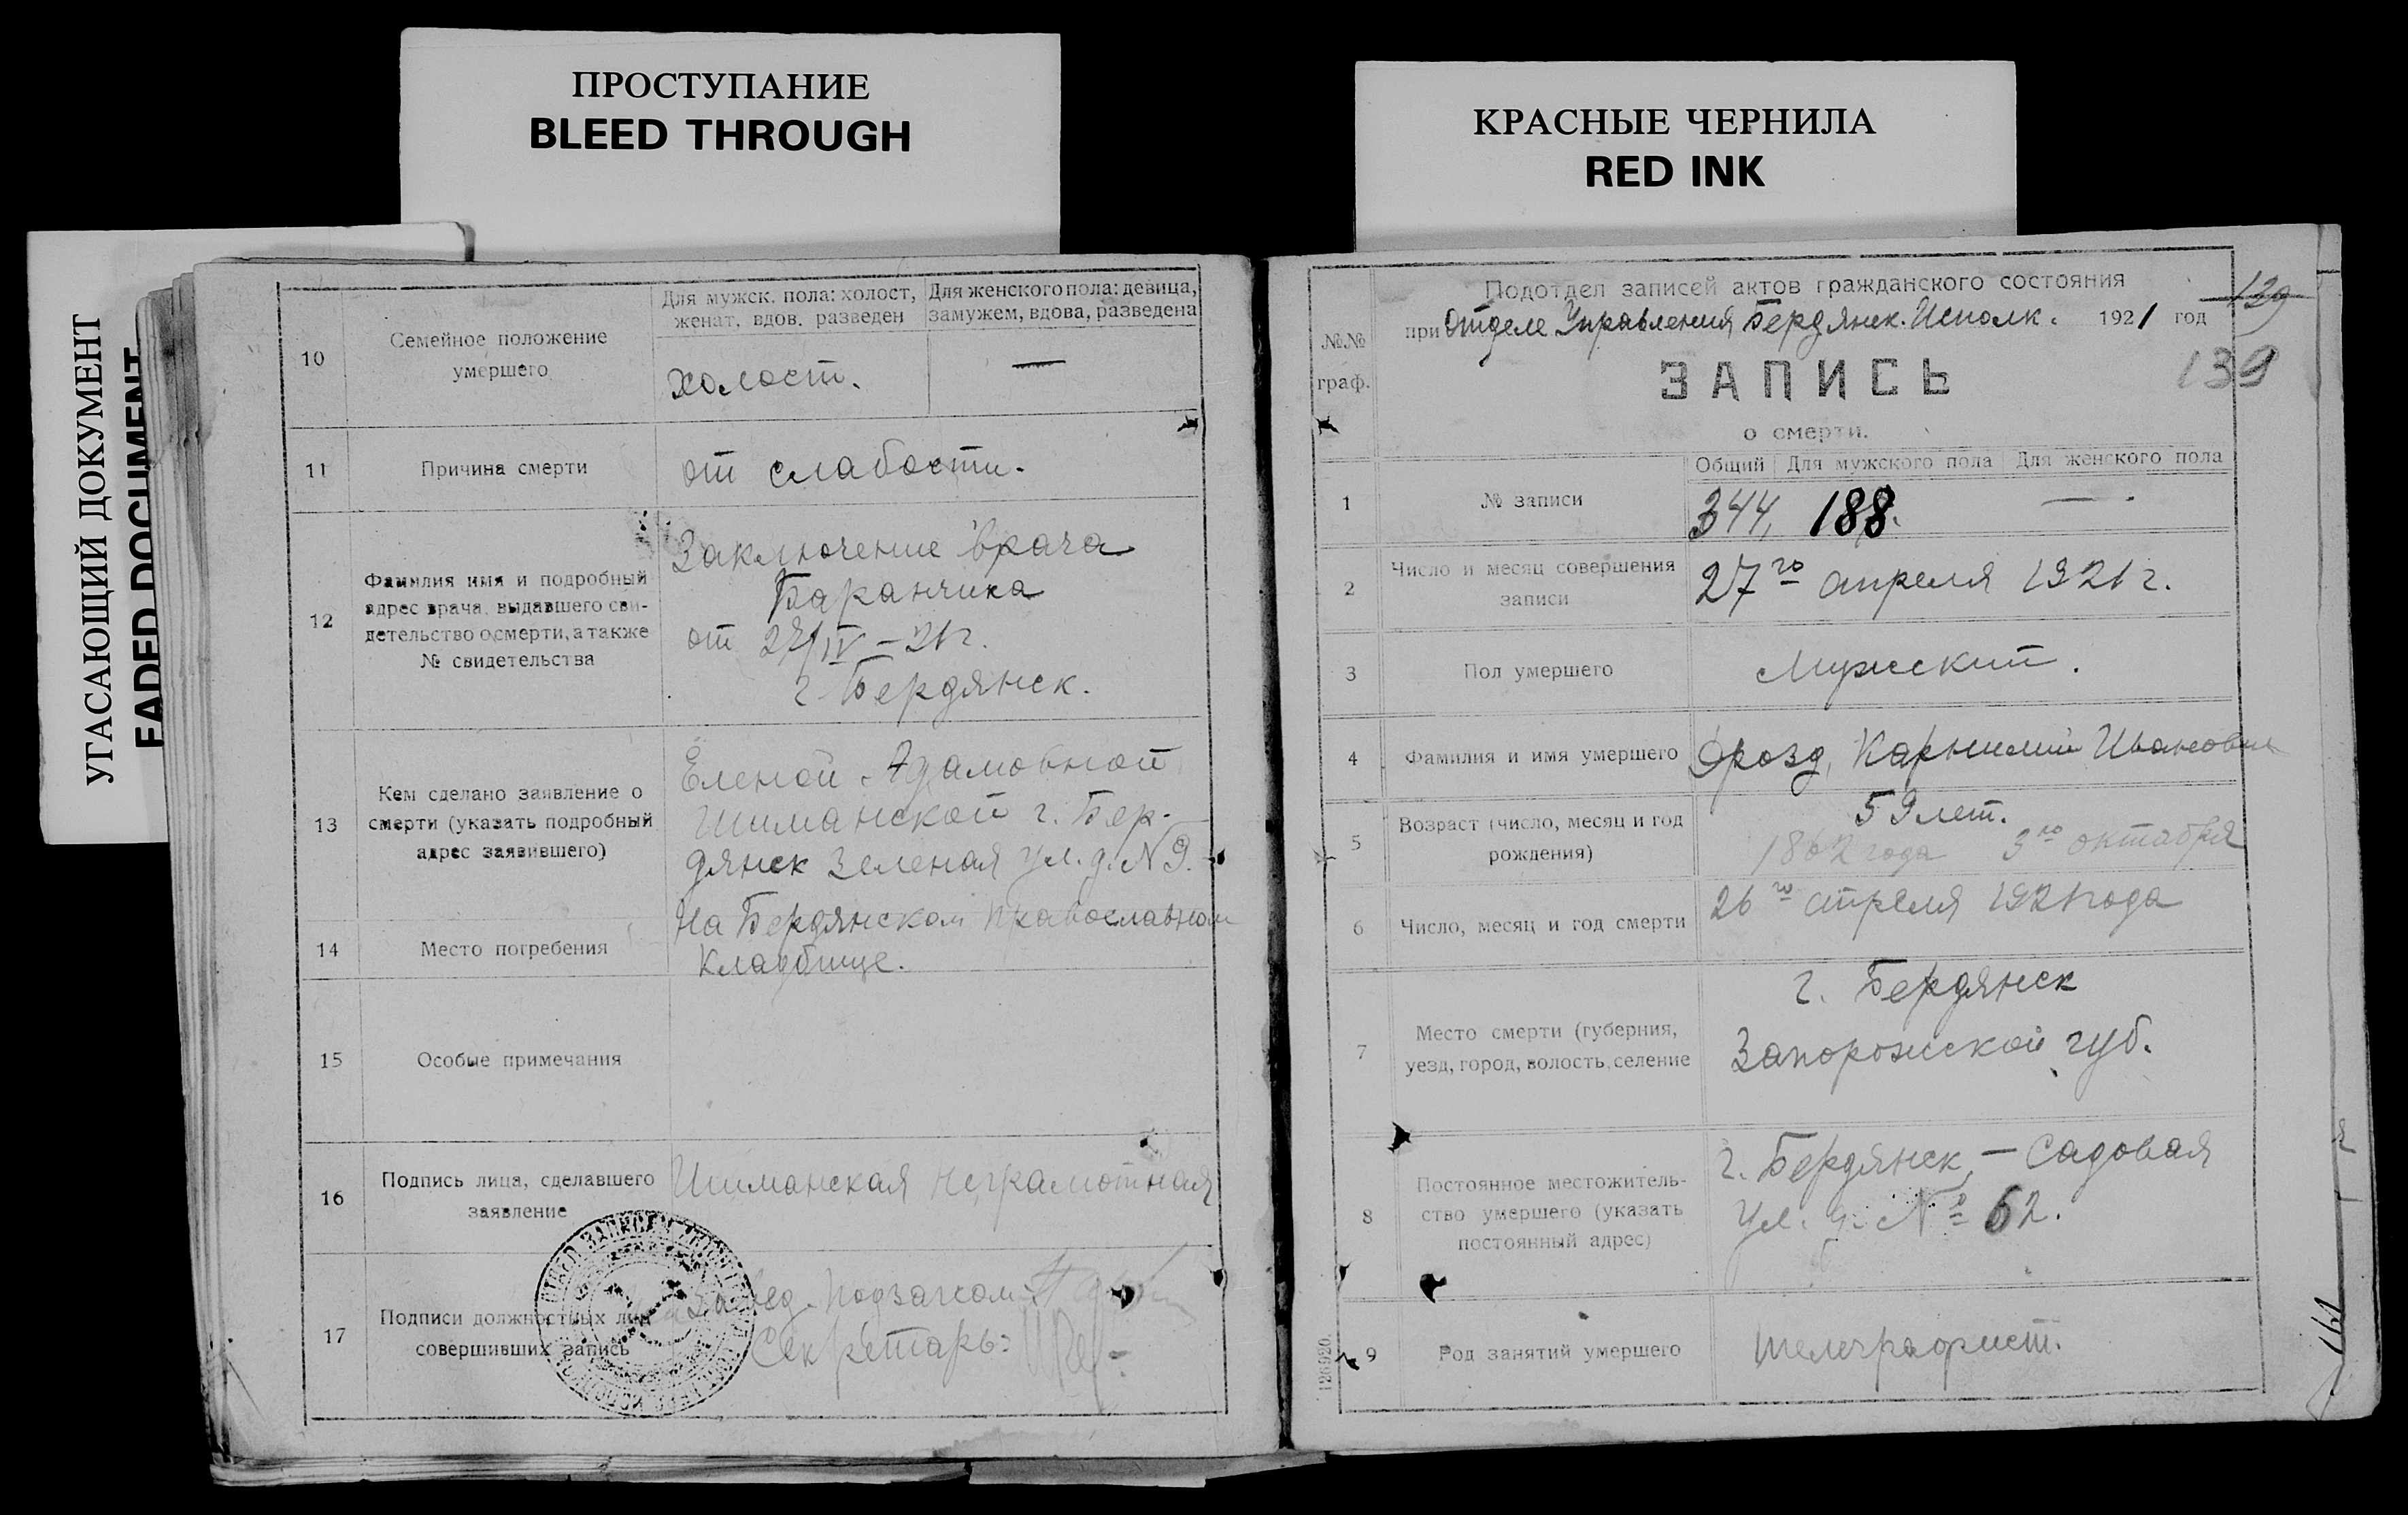 ПРОСТУПАНИЕ
BLEED THROUGH
КРАСНЫЕ ЧЕРНИЛА
RED INK
УГАСАЮЩИЙ ДОКУМЕНТ
FADED DOCUMENT
10
Семейное положение
умершего
Для мужск. пола: холост,
женат, вдов, разведен
Для женского пола: девица,
замужем, вдова, разведена
холост.
—
11
Причина смерти
от слабости.
12
Фамилия имя и подробный
адрес врача, выдавшего сви-
детельство о смерти, а также
№ свидетельства
Заключение врача
Баранчика
от 27/IV – 21 г.
г. Бердянск.
13
Кем сделано заявление о
смерти (указать подробный
адрес заявившего)
Еленой Адамовной
Шиманской г. Бер-
дянск Зеленая ул. д. № 9.
14
Место погребения
На Бердянском православном
кладбище.
15
Особые примечания
16
Подпись лица, сделавшего
заявление
Шиманская неграмотная
17
Подписи должностных лиц
совершивших запись
Завед. Подзагсом
Секретарь:
№№
граф.
Подотдел записей актов гражданского состояния
при Отделе Управления Бердянск. Исполк. 1921 год
139
139
ЗАПИСЬ
о смерти.
Общий
Для мужского пола
Для женского пола
1
№ записи
344, 188. —
2
Число и месяц совершения
записи
27го апреля 1921 г.
3
Пол умершего
Мужский.
4
Фамилия и имя умершего
Дрозд, Карнилий Иванович
5
Возраст (число, месяц и год
рождения)
59 лет.
1862 года 3го октября
6
Число, месяц и год смерти
26го апреля 1921 года
7
Место смерти (губерния,
уезд, город, волость, селение
г. Бердянск
Запорожской губ.
8
Постоянное местожитель-
ство умершего (указать
постоянный адрес)
г. Бердянск, – Садовая
ул. д. № 62.
9
Род занятий умершего
телеграфист.
126920.